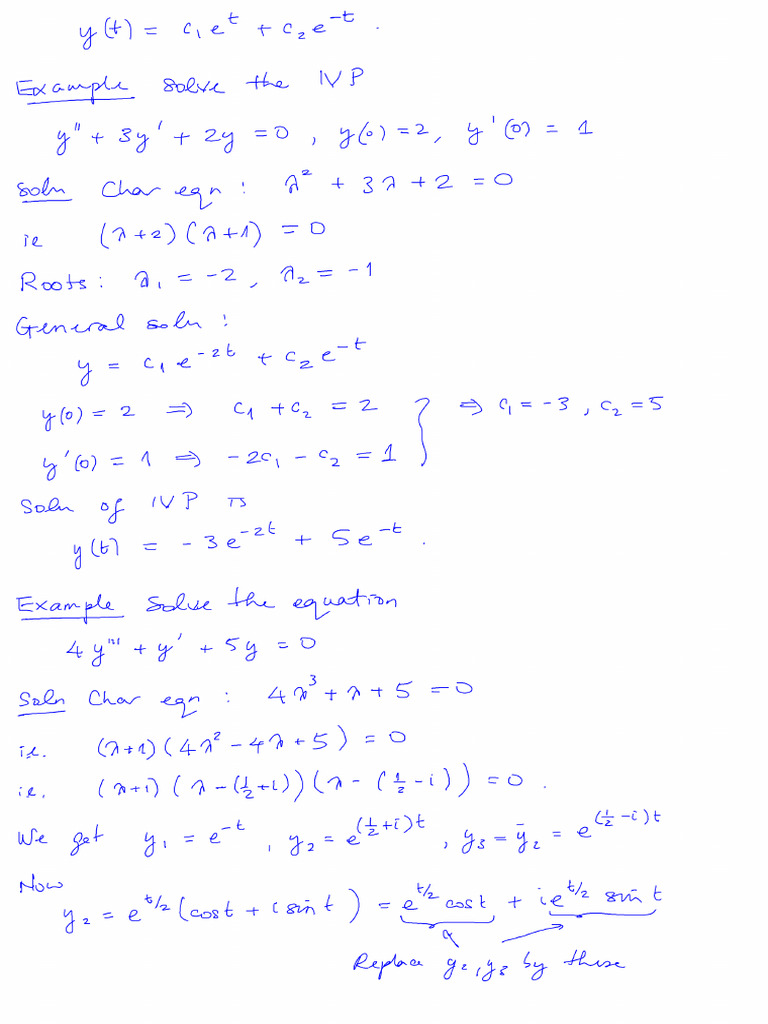 y(t) = c₁eᵗ + c₂e⁻ᵗ.
Example Solve the IVP
y" + 3y' + 2y = 0, y(0) = 2, y'(0) = 1
Soln Char eqn: λ² + 3λ + 2 = 0
ie (λ+2)(λ+1) = 0
Roots: λ₁ = -2, λ₂ = -1
General soln:
y = c₁e^{-2t} + c₂e^{-t}
y(0) = 2 ⇒ c₁ + c₂ = 2 } ⇒ c₁ = -3, c₂ = 5
y'(0) = 1 ⇒ -2c₁ - c₂ = 1
Soln of IVP is
y(t) = -3e^{-2t} + 5e^{-t}.
Example Solve the equation
4y''' + y' + 5y = 0
Soln Char eqn: 4λ³ + λ + 5 = 0
ie. (λ+1)(4λ² - 4λ + 5) = 0
ie. (λ+1)(λ - (½+i))(λ - (½-i)) = 0.
We get y₁ = e^{-t}, y₂ = e^{(½+i)t}, y₃ = ȳ₂ = e^{(½-i)t}
Now
y₂ = e^{t/2}(cost + i sint) = e^{t/2} cost + i e^{t/2} sint
Replace y₂, y₃ by these